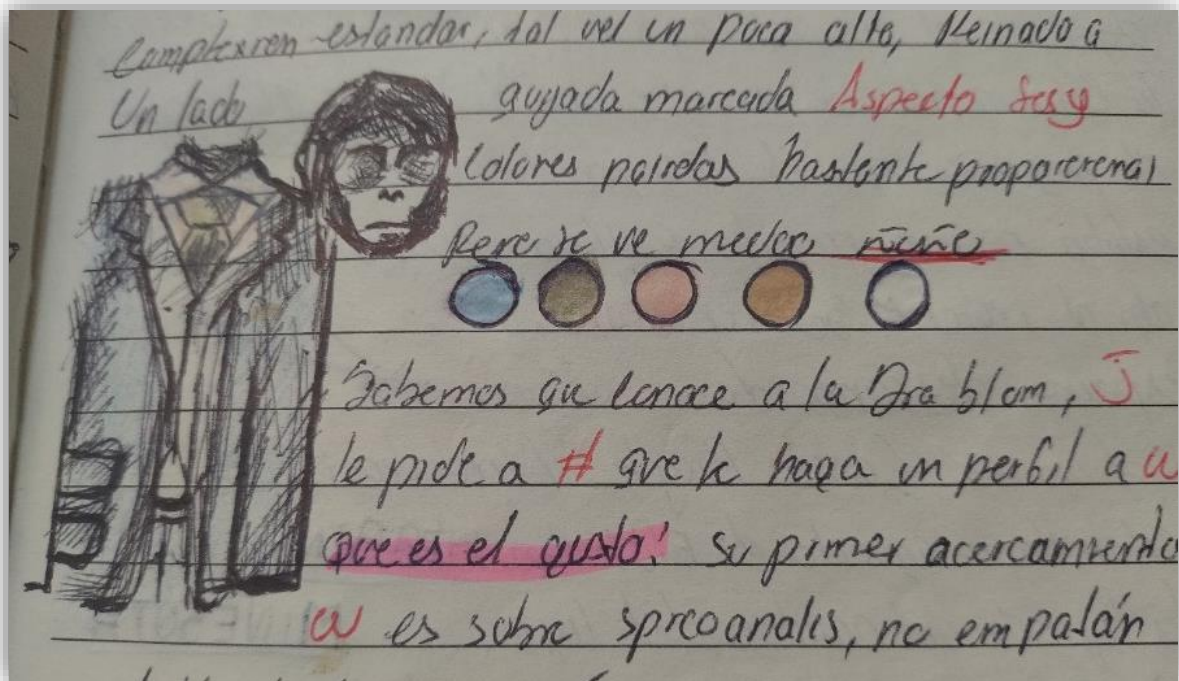 Complexion estandar, tal vel un poca alto, Peinado a
Un lado
quijada marcada Aspecto sexy
Colores palidos bastante proporcional
Pero se ve medio ñoño
Sabemos que conoce a la Dra blom, J
le pide a H que le haga un perfil a W
que es el gusto! su primer acercamiento
W es sobre psicoanalis, no empatán